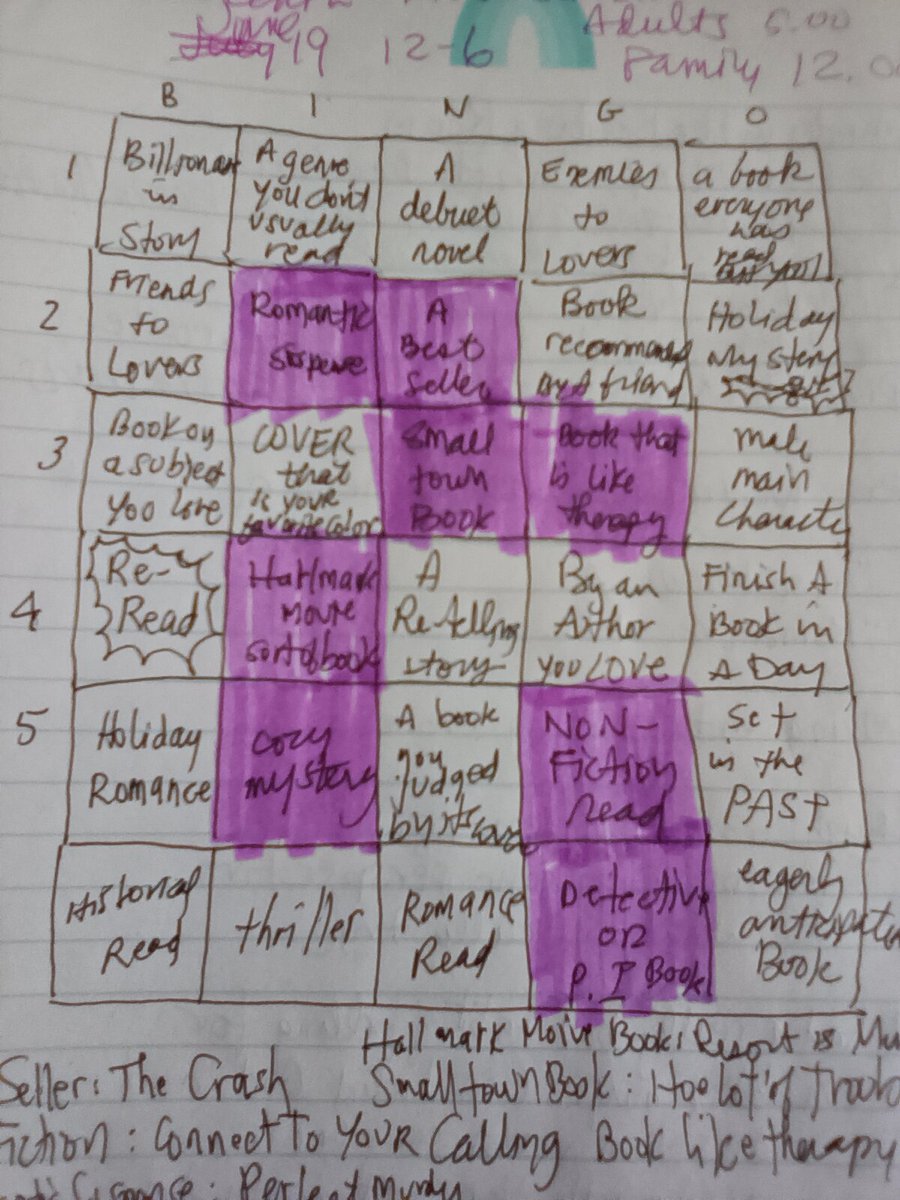 June
July 19 12-6
Adults 6.00
Family 12.0
B I N G O
1
Billionar
in
Story
A genre
you don't
usually
read
A
debuet
novel
Enemies
to
Lovers
a book
everyone
has
read
but you
2
Friends
to
Lovers
Romantic
Suspense
A
Best
Seller
Book
recommended
by A friend
Holiday
my story
3
Book on
a subject
you love
COVER
that
is your
favorite color
Small
town
Book
Book that
is like
therapy
male
main
Characte
4
Re-
Read
Hallmark
movie
sort of book
A
Retelling
story
By an
Author
you LOVE
Finish A
Book in
A Day
5
Holiday
Romance
cozy
mystery
A book
you
judged
by its cover
NON-
Fiction
Read
Set
in the
PAST
Historical
Read
thriller
Romance
Read
Detective
or
P. I Book
eagerly
anticipate
Book
Hallmark Moive Book: Resort is Mu
Seller: The Crash Small town Book:
Fiction: Connect To YOUR Calling Book like therapy
Perfect